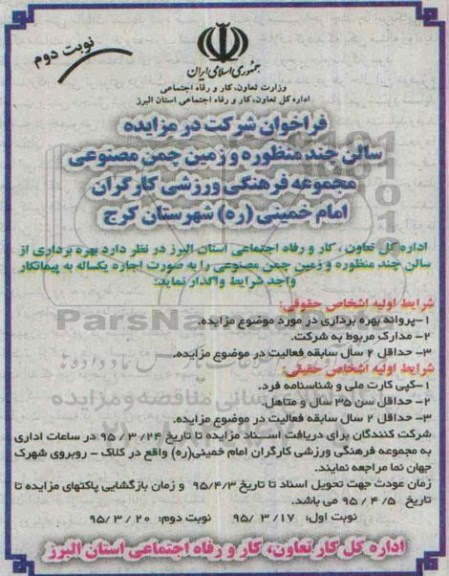 نوبت دوم
جمهوری اسلامی ایران
وزارت تعاون، کار و رفاه اجتماعی
اداره کل تعاون، کار و رفاه اجتماعی استان البرز
فراخوان شرکت در مزایده
سالن چند منظوره و زمین چمن مصنوعی
مجموعه فرهنگی ورزشی کارگران
امام خمینی (ره) شهرستان کرج
اداره کل تعاون، کار و رفاه اجتماعی استان البرز در نظر دارد بهره برداری از
سالن چند منظوره و زمین چمن مصنوعی را به صورت اجاره یکساله به پیمانکار
واجد شرایط واگذار نماید:
شرایط اولیه اشخاص حقوقی:
۱-پروانه بهره برداری در مورد موضوع مزایده.
۲- مدارک مربوط به شرکت.
۳- حداقل ۲ سال سابقه فعالیت در موضوع مزایده.
شرایط اولیه اشخاص حقیقی:
۱-کپی کارت ملی و شناسنامه فرد.
۲-حداقل سن ۳۵ سال و متاهل.
۳- حداقل ۲ سال سابقه فعالیت در موضوع مزایده.
شرکت کنندگان برای دریافت اسناد مزایده تا تاریخ ۹۵/۳/۲۴ در ساعات اداری
به مجموعه فرهنگی ورزشی کارگران امام خمینی(ره) واقع در کلاک - روبروی شهرک
جهان نما مراجعه نمایند.
زمان عودت جهت تحویل اسناد تا تاریخ ۹۵/۴/۳ و زمان بازگشایی پاکتهای مزایده تا
تاریخ ۹۵/۴/۵ می باشد.
نوبت اول: ۹۵/۳/۱۷ نوبت دوم: ۹۵/۳/۲۰
اداره کل کار تعاون، کار و رفاه اجتماعی استان البرز